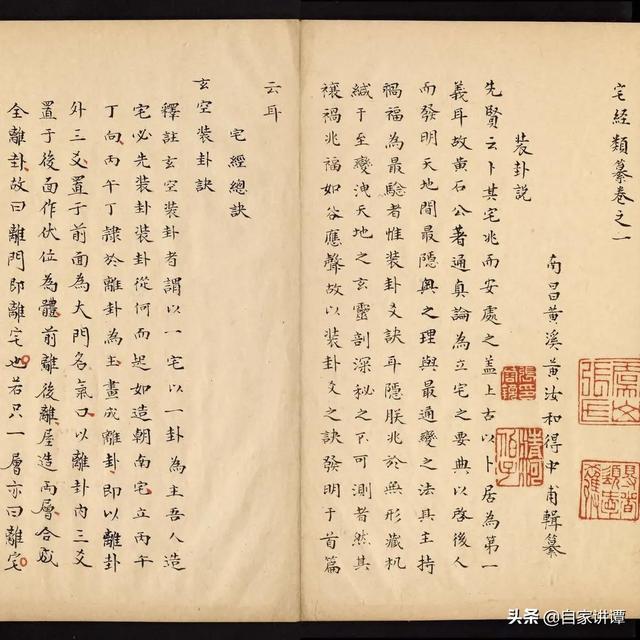 宅經類纂卷之一
南昌黃溪黃汝和得中甫輯纂
裝卦說
先賢云卜其宅兆而安處之蓋上古以卜居為第一
義耳故黃石公著通真論為立宅之要典以啓後人
而發明天地間最隱與之理與最通變之法具主持
禍福為最驗者惟裝卦爻訣耳隱朕兆於無形藏机
緘于至變洩天地之玄靈剖深秘之不可測者然其
禳禍兆福如谷應聲故以裝卦爻之訣發明于首篇
云耳
宅經總訣
玄空裝卦訣
釋註玄空裝卦者謂以一宅以一卦為主吾人造
宅必先裝卦裝卦從何而起如造朝南宅立丙午
丁向丙午丁隸於離卦為主畫成離卦即以離卦
外三爻置于前面為大門名氣口以離卦內三爻
置于後面作伏位為體前離後離屋造兩層合成
全離卦故曰離門即離宅也若只一層亦曰離宅
头条 @自家讲谭